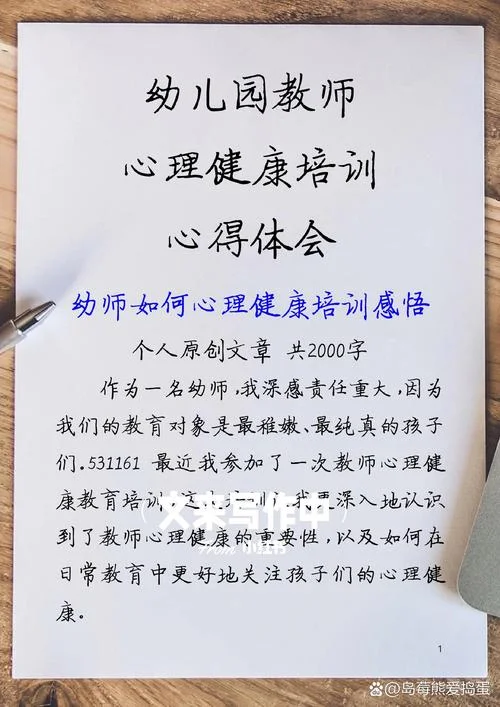 幼儿园教师
心理健康培训
心得体会
幼师如何心理健康培训感悟
个人原创文章 共2000字
作为一名幼师,我深感责任重大,因为
我们的教育对象是最稚嫩、最纯真的孩子
们.531161 最近我参加了一次教师心理健
康教育培训 深入地认识
(文来写作中)
到了教师心理健康的重要性,以及如何在
from 小红书
日常教育中更好地关注孩子们的心理健
康。
1
百度@岛莓熊爱捣蛋